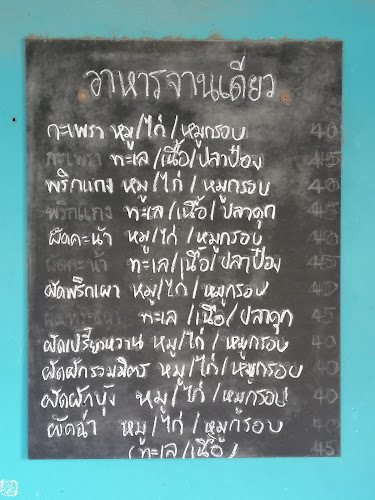 อาหารจานเดียว
กะเพรา หมู/ไก่/หมูกรอบ 40
กะเพรา ทะเล/เนื้อ/ปลาป๋อง 45
พริกแกง หมู/ไก่/หมูกรอบ 40
พริกแกง ทะเล/เนื้อ/ปลาดุก 45
ผัดคะน้า หมู/ไก่/หมูกรอบ 40
ผัดคะน้า ทะเล/เนื้อ/ปลาป๋อง 45
ผัดพริกเผา หมู/ไก่/หมูกรอบ 40
ผัดพริกเผา ทะเล/เนื้อ/ปลาดุก 45
ผัดเปรี้ยวหวาน หมู/ไก่/หมูกรอบ 40
ผัดผักรวมมิตร หมู/ไก่/หมูกรอบ 40
ผัดผักบุ้ง หมู/ไก่/หมูกรอบ 40
ผัดฉ่า หมู/ไก่/หมูกรอบ 40
(ทะเล/เนื้อ) 45